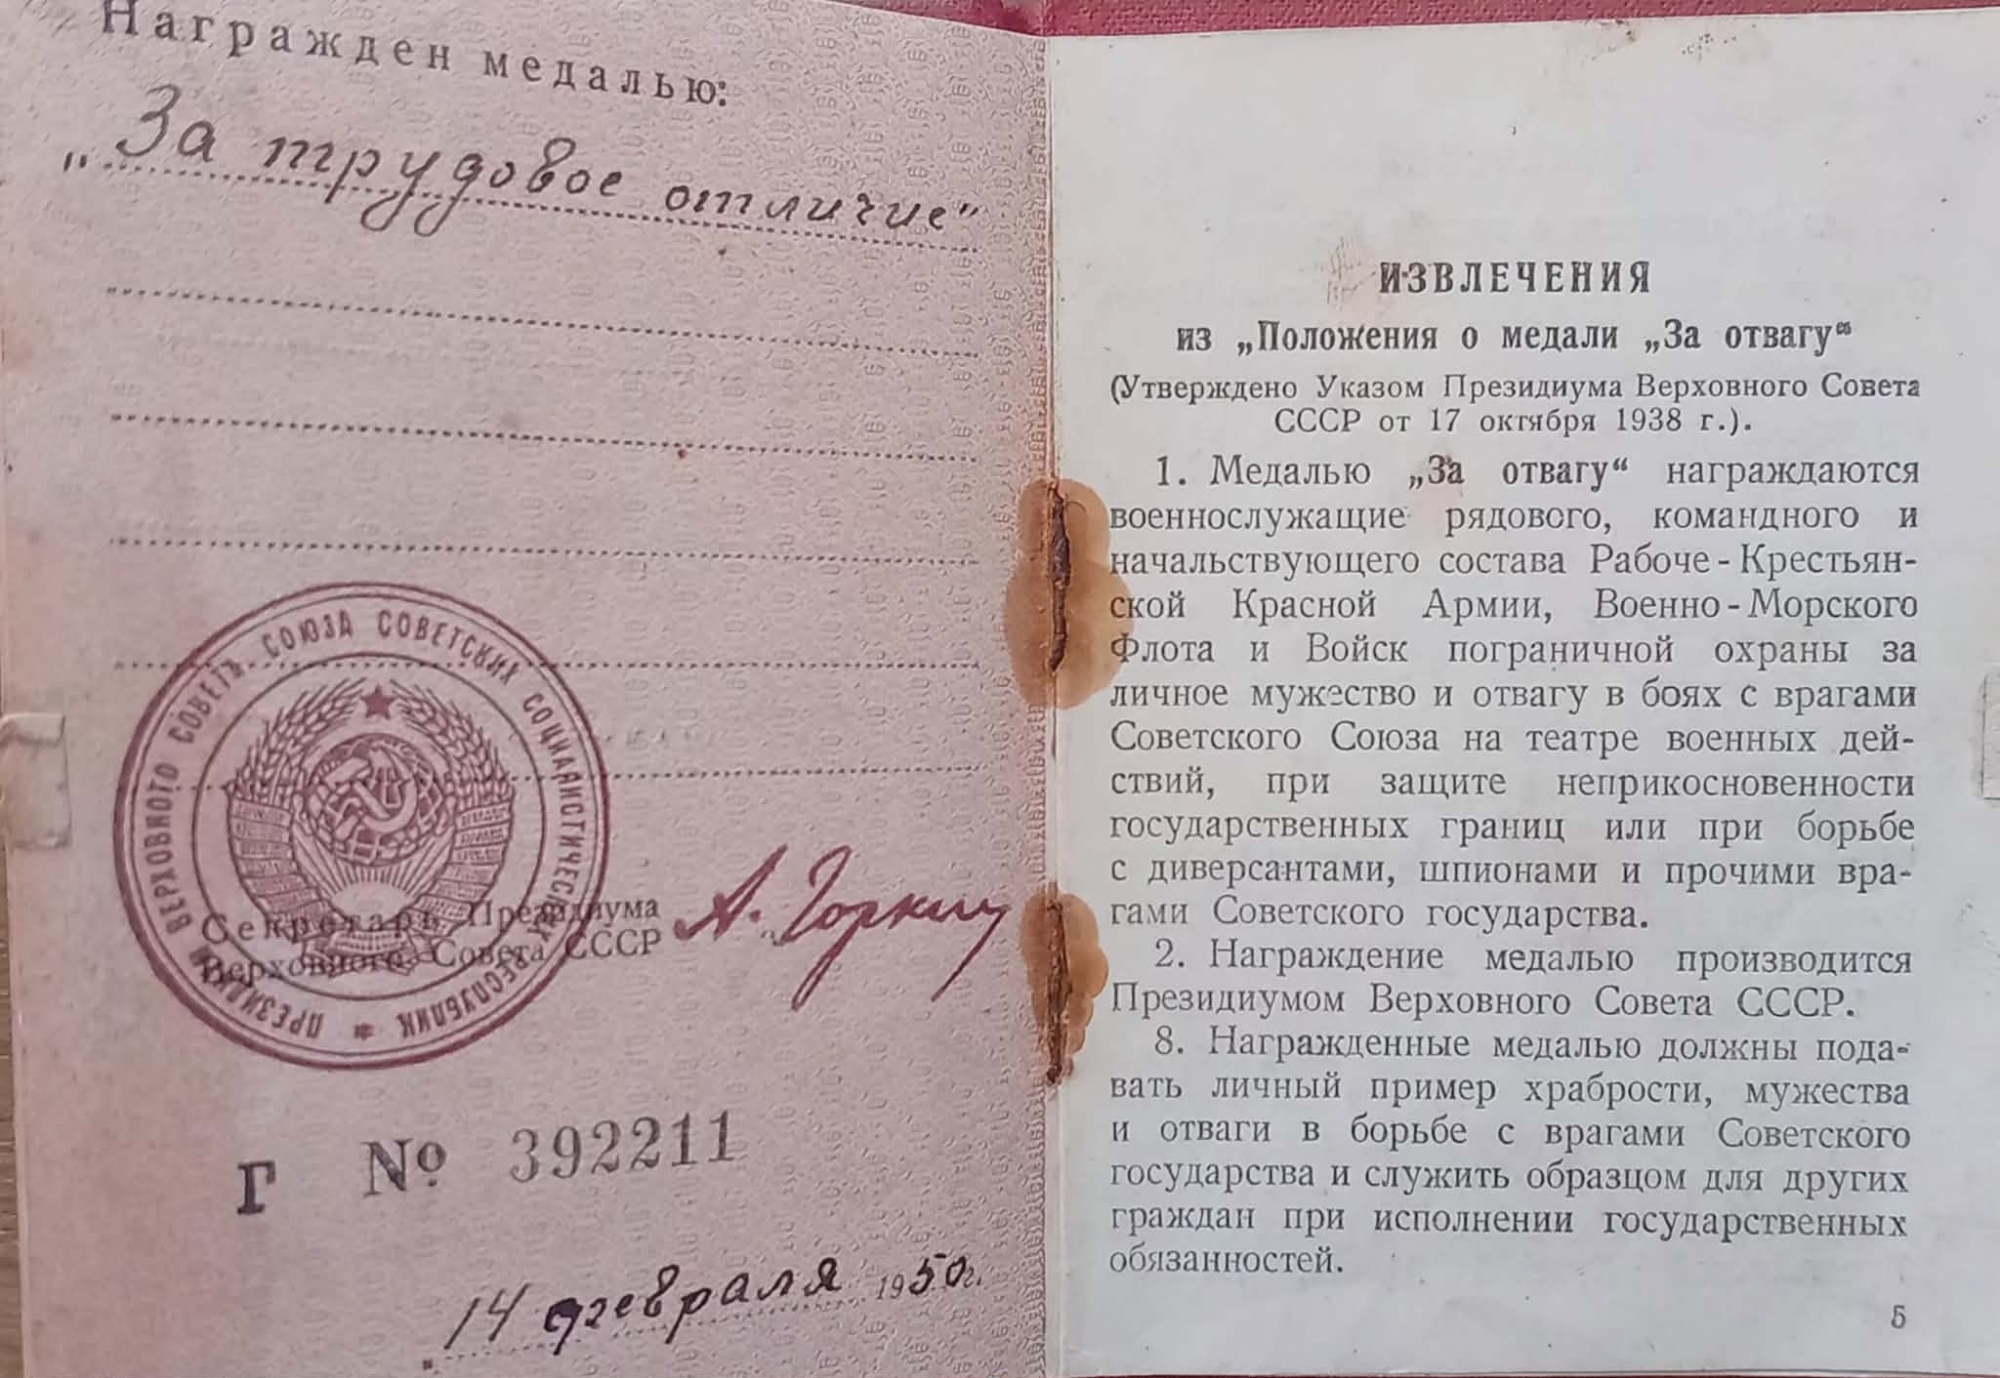 Награжден медалью:
„За трудовое отличие"
ПРЕЗИДИУМ ВЕРХОВНОГО СОВЕТА СОЮЗА СОВЕТСКИХ СОЦИАЛИСТИЧЕСКИХ РЕСПУБЛИК *
Секретарь Президиума
Верховного Совета СССР
А. Горкин
Г № 392211
„14 февраля 1950 г.
ИЗВЛЕЧЕНИЯ
из „Положения о медали „За отвагу““
(Утверждено Указом Президиума Верховного Совета
СССР от 17 октября 1938 г.).
1. Медалью „За отвагу“ награждаются
военнослужащие рядового, командного и
начальствующего состава Рабоче-Крестьян-
ской Красной Армии, Военно-Морского
Флота и Войск пограничной охраны за
личное мужество и отвагу в боях с врагами
Советского Союза на театре военных дей-
ствий, при защите неприкосновенности
государственных границ или при борьбе
с диверсантами, шпионами и прочими вра-
гами Советского государства.
2. Награждение медалью производится
Президиумом Верховного Совета СССР.
8. Награжденные медалью должны пода-
вать личный пример храбрости, мужества
и отваги в борьбе с врагами Советского
государства и служить образцом для других
граждан при исполнении государственных
обязанностей.
5